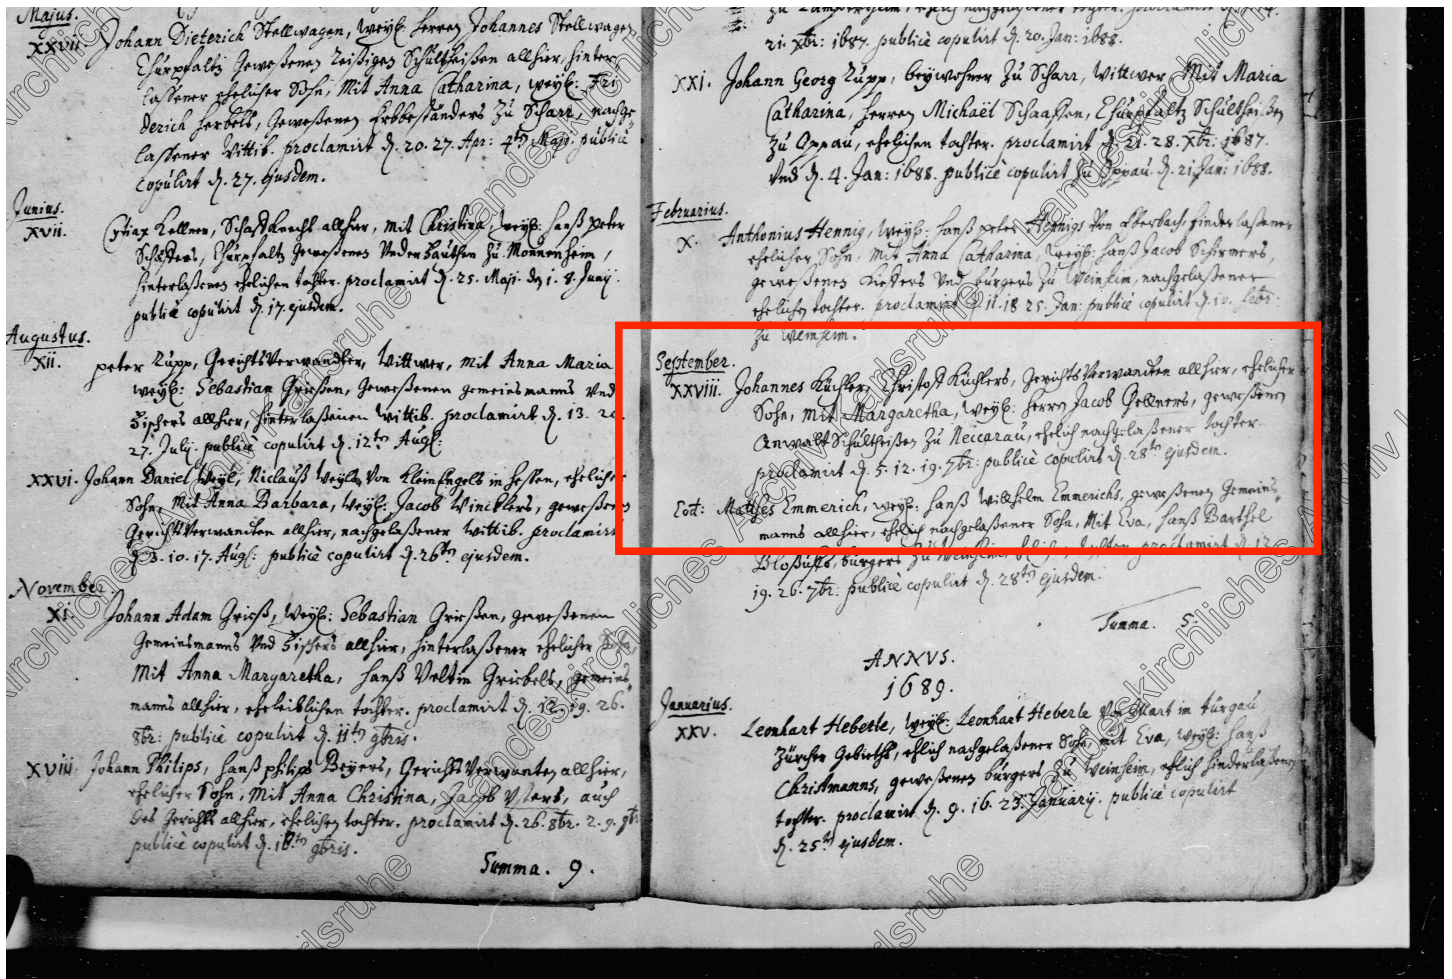 Majus.
XXVII. Johann Dieterich Stellwagen, weyl: Herren Johannes Stellwagen
Churpfaltz geweßenen reißigen Schultheißen allhier, hinter-
laßener ehelicher Sohn, Mit Anna Catharina, weyl: Fri
derich Herbels, geweßenen Erbbeständers zu Scharr, nachge-
laßener Wittib. proclamirt d. 20. 27. Apr: 4ten Maji. publicè
copulirt d. 27. ejusdem.
Junius.
XVII. Cyriax Kellner, Schaffknecht allhier, mit Christina, weyl: Hanß Peter
Schäders, Churpfaltz geweßenen zu Monnenheim,
hinterlaßenen ehelichen tochter. proclamirt d. 25. Maji. den 1. 8. Junij.
publicè copulirt d. 17. ejusdem.
Augustus.
XII. peter Rupp, GerichtsVerwandter, Wittwer, mit Anna Maria
weyl: Sebastian Grießen, geweßenen gemeinsmanns Vnd
Fischers allhier, hinterlaßenen Wittib. proclamirt d. 13. 20.
27. Julij. publicè copulirt d. 12ten Aug:
XXVI. Johann Daniel Weyl, Niclauß Weyls Von Kleinengels in Heßen, ehelicher
Sohn, Mit Anna Barbara, weyl: Jacob Wincklers, geweßenen
GerichtsVerwandten allhier, nachgelaßener Wittib. proclamirt
d. 3. 10. 17. Aug: publicè copulirt d. 26ten ejusdem.
November
XI. Johann Adam Grieß, Weyl: Sebastian Grießen, geweßenen
Gemeinsmanns Vnd Fischers allhier, hinterlaßener ehelicher Sohn,
Mit Anna Margaretha, Hanß Veltin Griebels, gemeins-
manns allhier, eheleiblichen tochter. proclamirt d. 12. 19. 26.
8br: publicè copulirt d. 11ten 9bris.
XVIII Johann Philips, Hanß philips Beyers, GerichtsVerwanten allhier,
ehelicher Sohn, Mit Anna Christina, Jacob Vsters, auch
des Gerichts allhier, ehelichen tochter. proclamirt d. 26. 8br. 2. 9. 9br
publicè copulirt d. 18ten 9bris.
Summa. 9.
21. Xbr: 1687. publicè copulirt d. 20. Jan: 1688.
XXI. Johann Georg Rupp, beywohner zu Scharr, Wittwer, Mit Maria
Catharina, Herren Michaël Schaaffen, Churpfaltz Schultheißen
zu Oppau, ehelichen tochter. proclamirt d. 21. 28. Xbr: 1687.
Vnd d. 4. Jan: 1688. publicè copulirt zu Oppau d. 21 Jan: 1688.
Februarius.
X. Anthonius Hennig, weyl: Hanß peter Hennigs Von Eberbach hinderlaßener
ehelicher Sohn, Mit Anna Catharina, weyl: Hanß Jacob Schirmers,
geweßenen Vnd bürgers zu Weinheim, nachgelaßener
ehelichen tochter. proclamirt d. 11. 18 25. Jan: publicè copulirt d. 10. Febr:
zu Weinheim.
September.
XXVIII. Johannes Küchler, Christoff Küchlers, GerichtsVerwandten allhier, ehelicher
Sohn, mit Margaretha, weyl: Herrn Jacob Gellners, geweßenen
Anwalt Schultheißen zu Neccarau, ehelich nachgelaßener tochter.
proclamirt d. 5. 12. 19. 7br: publicè copulirt d. 28ten ejusdem.
Eod: Matthes Emmerich, weyl: Hanß Willhelm Emmerichs, geweßenen Gemeins-
manns allhier, ehelich nachgelaßener Sohn, Mit Eva, Hanß Barthel
bürgers zu Weinheim, ehelichen tochter. proclamirt d. 12.
19. 26. 7br: publicè copulirt d. 28ten ejusdem.
Summa. 5.
ANNVS.
1689.
Januarius.
XXV. Leonhart Heberle, weyl: Leonhart Heberle Von Mart im türgau
Zürcher Gebieths, ehlich nachgelaßener Sohn, mit Eva, weyl: Hanß
Christmanns, geweßenen bürgers zu Weinheim, ehlich hinderlaßenen
tochter. proclamirt d. 9. 16. 23. January. publicè copulirt
d. 25ten ejusdem.
Landeskirchliches Archiv Karlsruhe